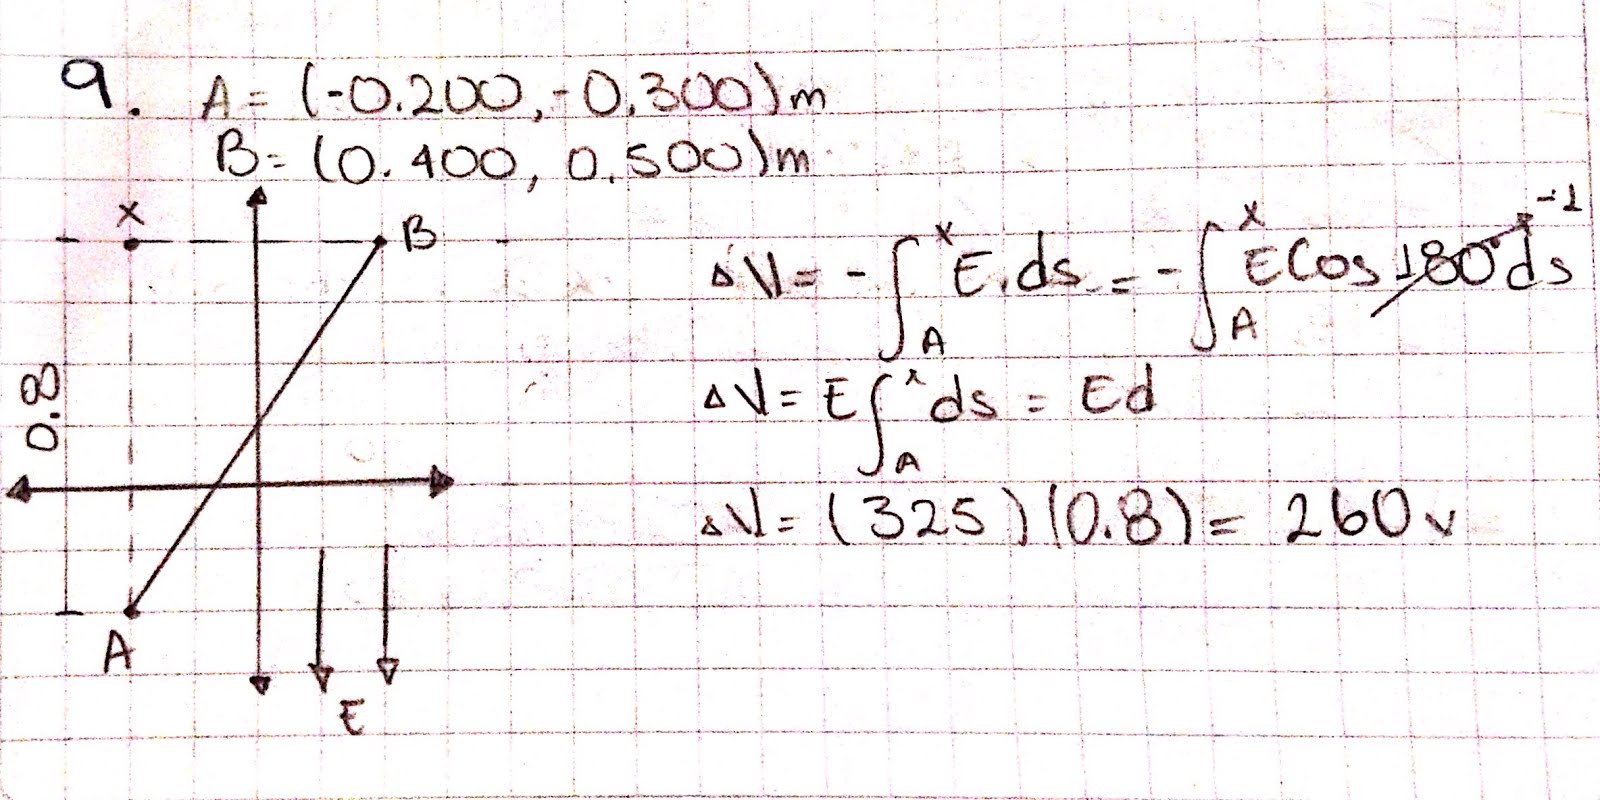 9. A = (-0.200, -0.300)m
B = (0.400, 0.500)m
x
B
0.8
A
E
ΔV = -∫_A^x E . ds = -∫_A^x E Cos 180° ds -1
ΔV = E ∫_A^x ds = Ed
ΔV = (325)(0.8) = 260 v